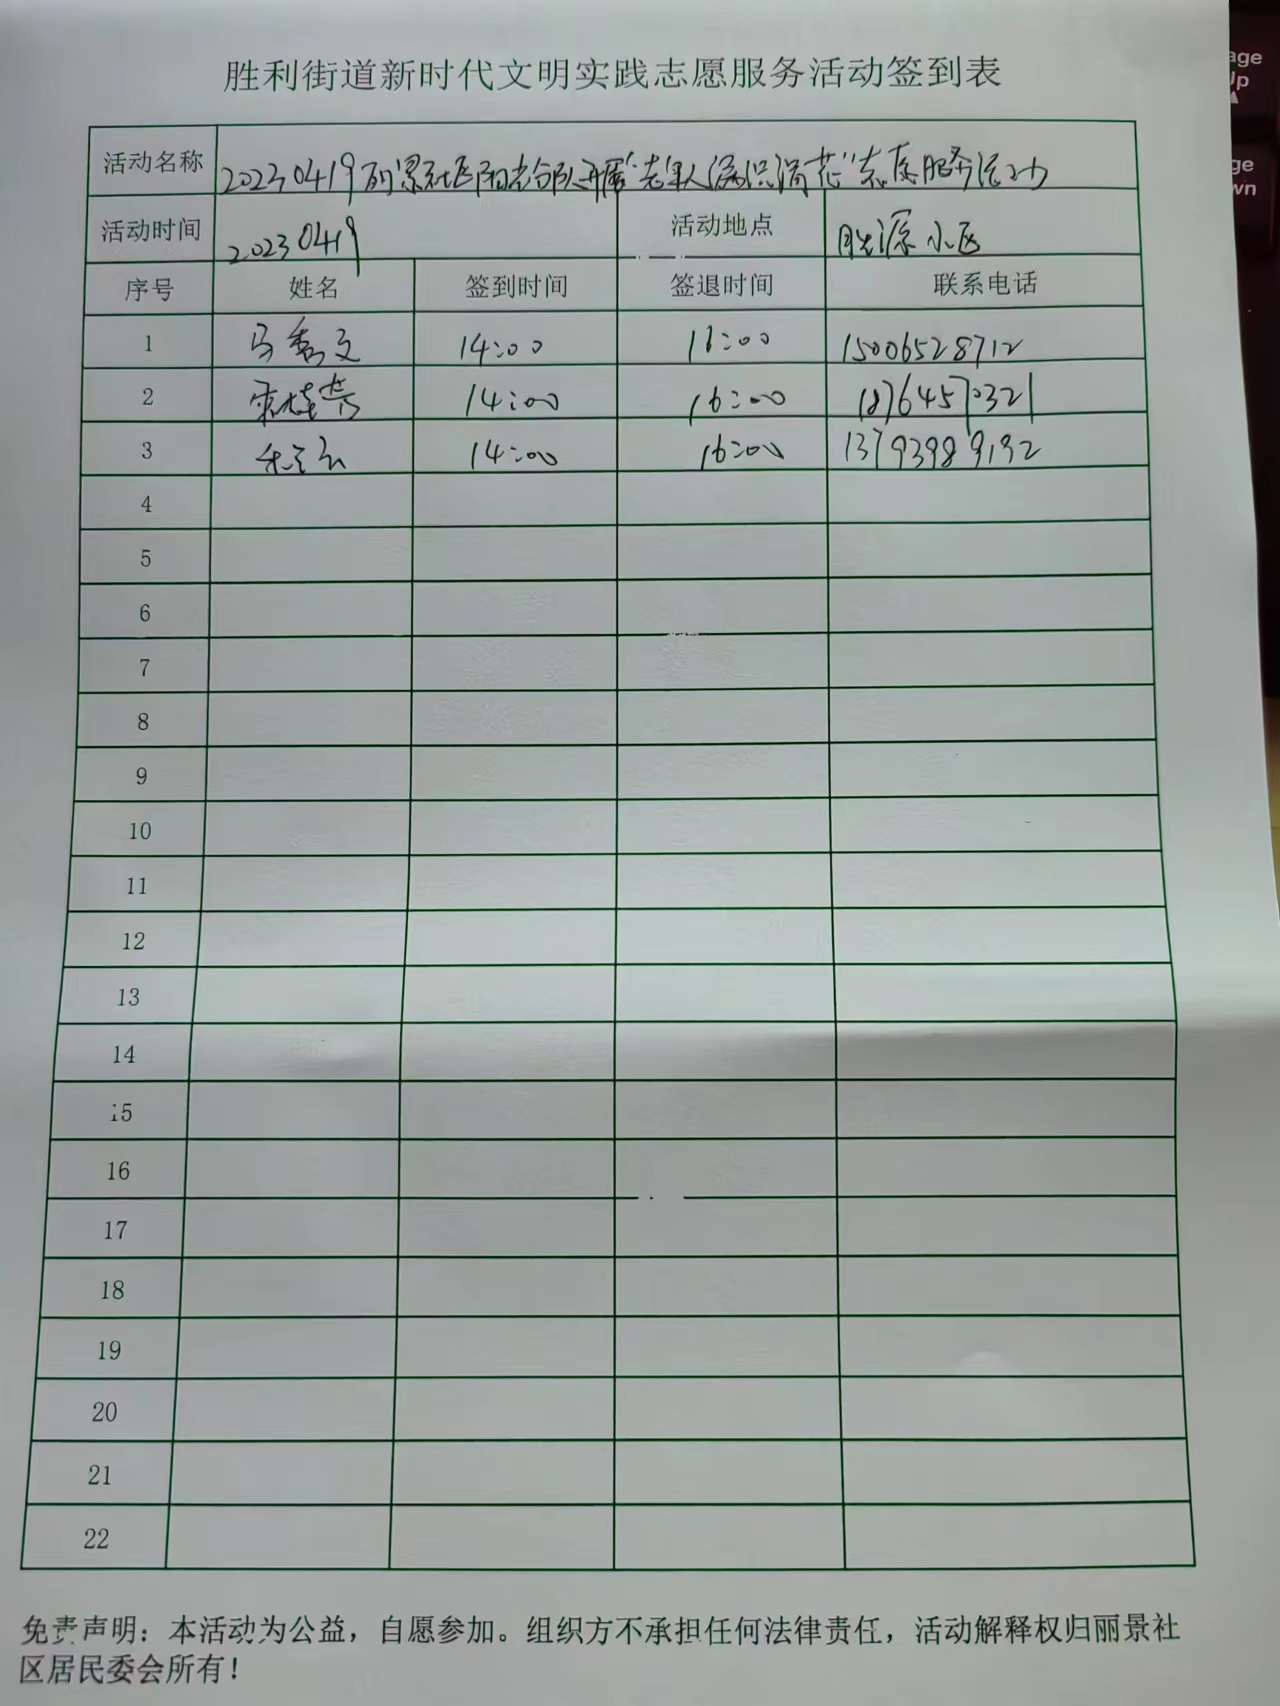 胜利街道新时代文明实践志愿服务活动签到表
活动名称 20230419丽景社区阳光分队开展"老年人防诈消花"志愿服务活动
活动时间 20230419 活动地点 胜源小区
序号 姓名 签到时间 签退时间 联系电话
1 马秀文 14:00 16:00 15006528712
2 14:00 16:00 18764570321
3 14:00 16:00 13793989192
4
5
6
7
8
9
10
11
12
13
14
15
16
17
18
19
20
21
22
免责声明：本活动为公益，自愿参加。组织方不承担任何法律责任，活动解释权归丽景社
区居民委会所有！
age
Up
ge
wn